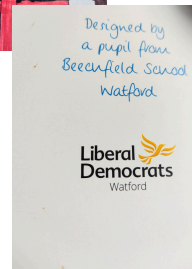 Designed by
a pupil from
Beechfield School
Watford
Liberal
Democrats
Watford